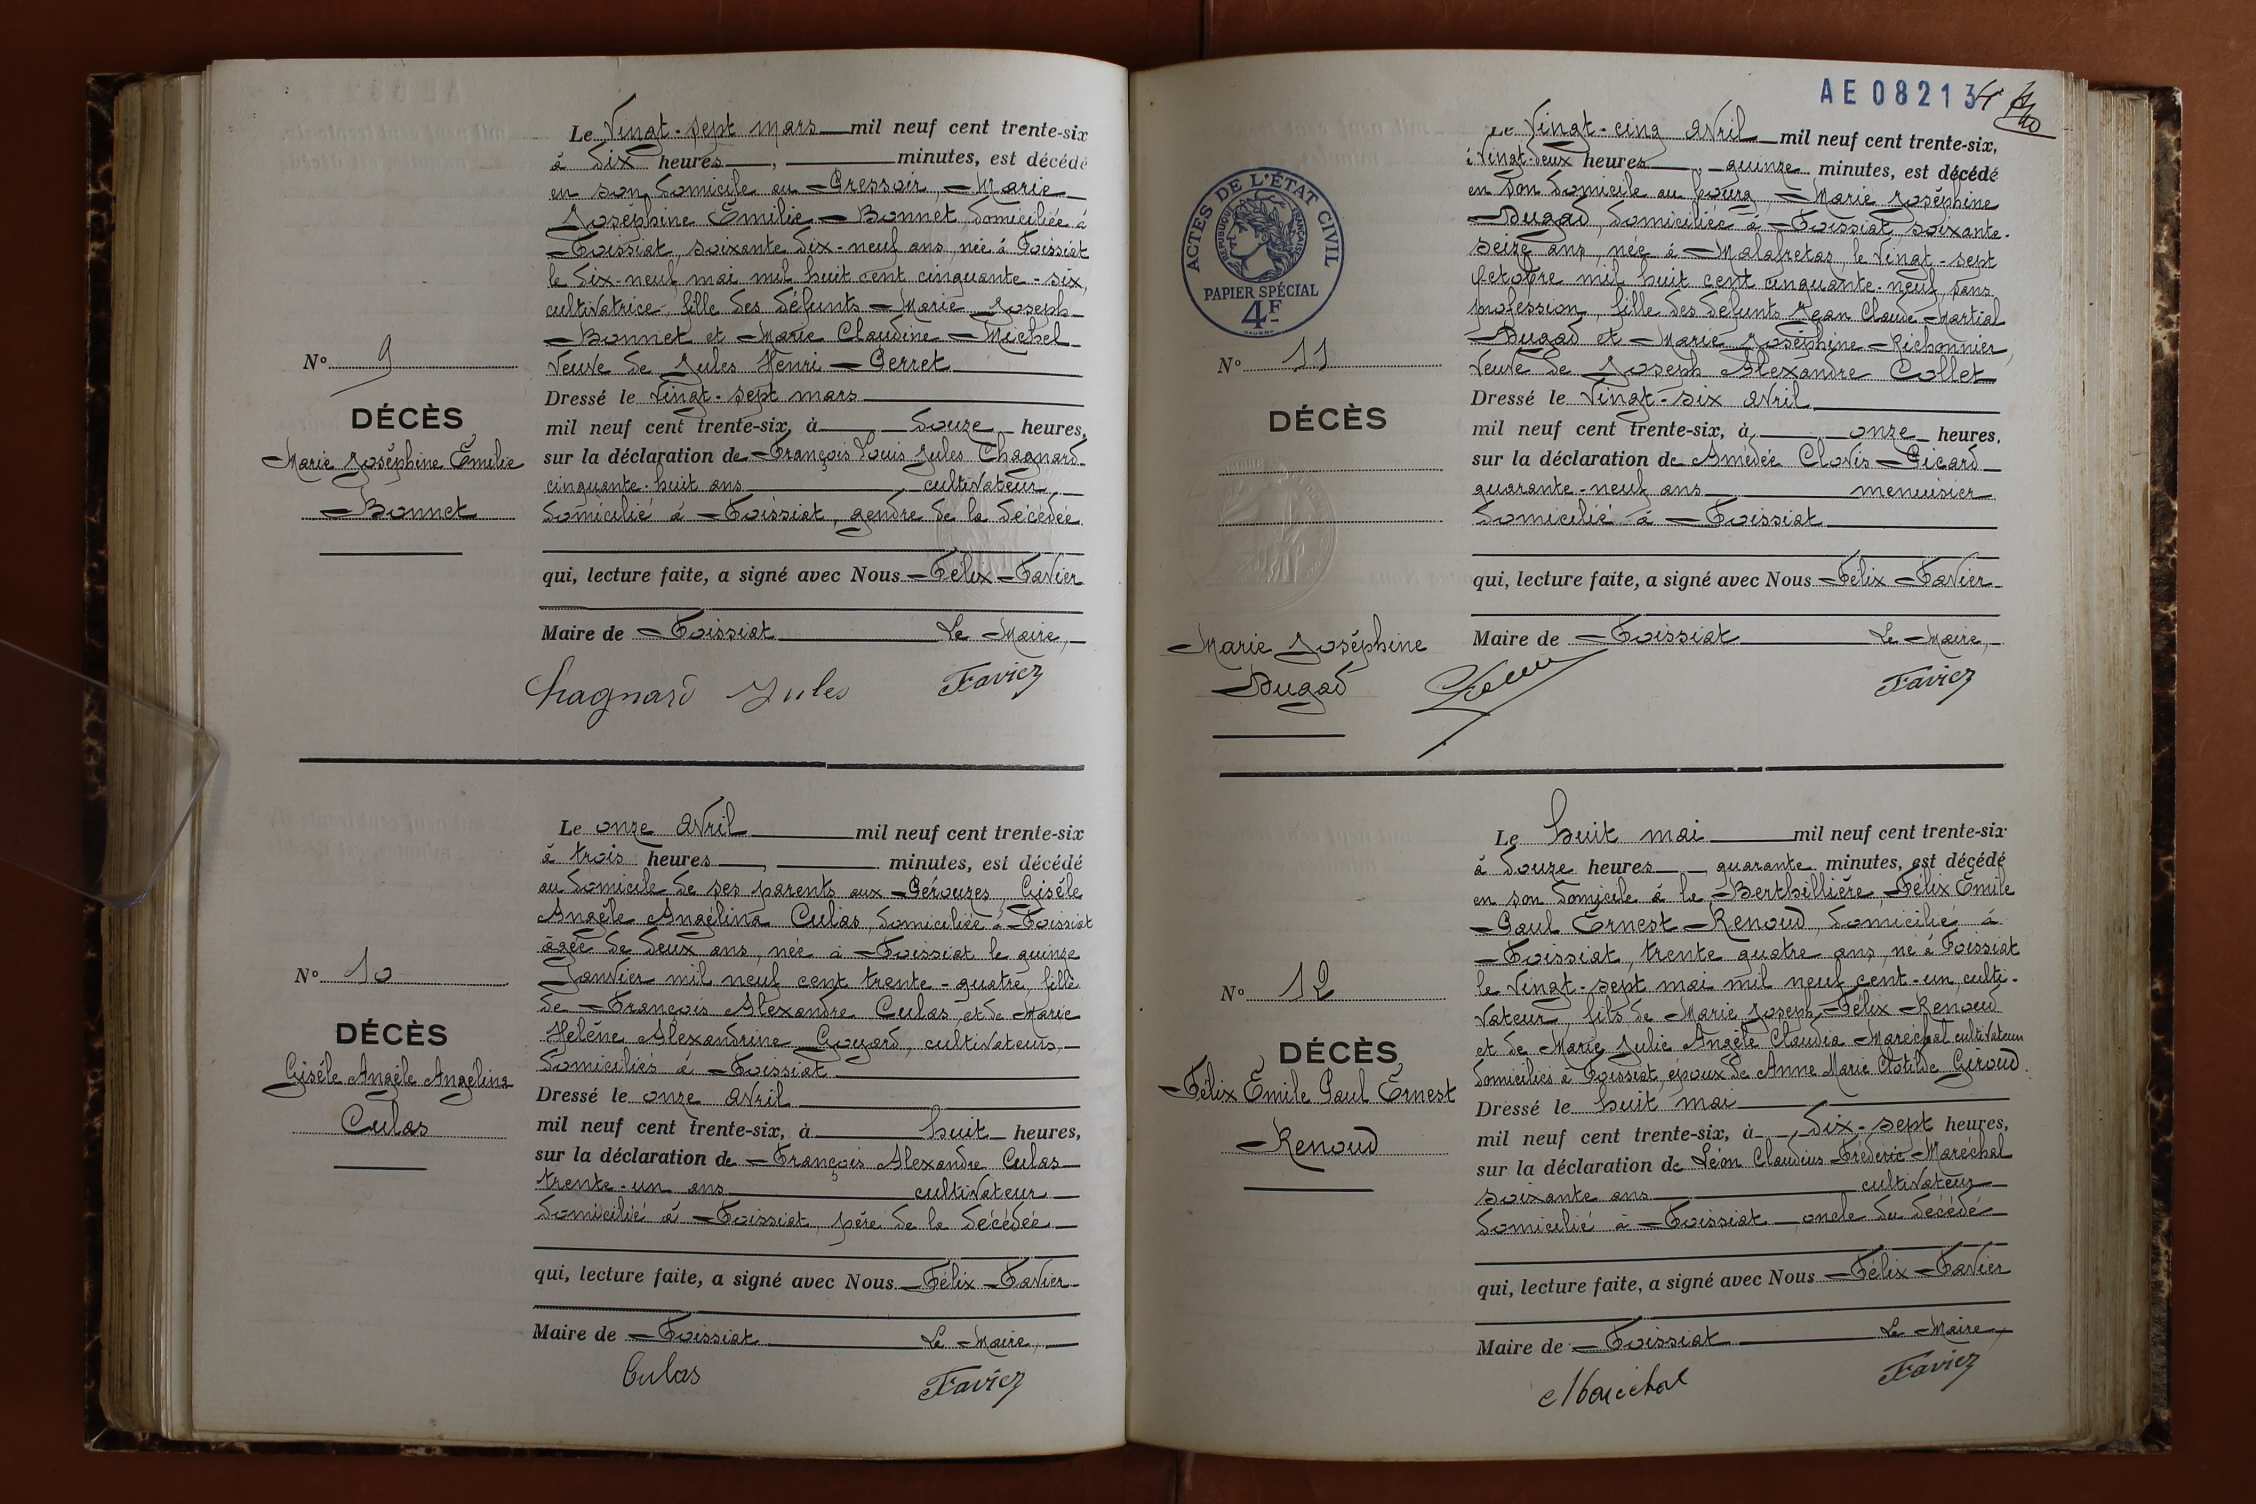 Le Vingt-sept mars mil neuf cent trente-six
à dix heures, minutes, est décédé
en son domicile au Pressoir, Marie
Joséphine Emilie Bonnet domiciliée à
Foissiat, soixante dix-neuf ans, née à Foissiat
le dix-neuf mai mil huit cent cinquante-six,
cultivatrice, fille des défunts Marie Joseph
Bonnet et Marie Claudine Michel
Veuve de Jules Henri Perret
Dressé le Vingt-sept mars
mil neuf cent trente-six, à douze heures,
sur la déclaration de François Louis Jules Chagnard
cinquante-huit ans, cultivateur
domicilié à Foissiat, gendre de la décédée
qui, lecture faite, a signé avec Nous Félix Favier
Maire de Foissiat Le Maire,
Chagnard Jules Favier
N° 9
DÉCÈS
Marie Joséphine Emilie
Bonnet
Le onze Avril mil neuf cent trente-six
à trois heures, minutes, est décédé
au domicile de ses parents aux Pérouzes, Gisèle
Angèle Angélina Culas, domiciliée à Foissiat
âgée de deux ans, née à Foissiat le quinze
Janvier mil neuf cent trente-quatre, fille
de François Alexandre Culas et de Marie
Hélène Alexandrine Goyard, cultivateurs,
domiciliés à Foissiat
Dressé le onze Avril
mil neuf cent trente-six, à huit heures,
sur la déclaration de François Alexandre Culas
trente-un ans cultivateur
domicilié à Foissiat, père de la décédée
qui, lecture faite, a signé avec Nous Félix Favier
Maire de Foissiat Le Maire,
Culas Favier
N° 10
DÉCÈS
Gisèle Angèle Angélina
Culas
AE 08213
40
ACTES DE L'ÉTAT CIVIL
RÉPUBLIQUE FRANÇAISE
PAPIER SPÉCIAL
4F
Le Vingt-cinq Avril mil neuf cent trente-six,
à Vingt-deux heures, quinze minutes, est décédé
en son domicile au bourg Marie Joséphine
Dugad, domiciliée à Foissiat, soixante-
seize ans, née à Malafretaz, le Vingt-sept
Octobre mil huit cent cinquante-neuf, sans
profession, fille des défunts Jean Claude Martial
Dugad et Marie Joséphine Richonnier,
Veuve de Joseph Alexandre Collet
Dressé le Vingt-six Avril
mil neuf cent trente-six, à onze heures,
sur la déclaration de Amédée Clovis Picard
quarante-neuf ans menuisier
domicilié à Foissiat
qui, lecture faite, a signé avec Nous Félix Favier
Maire de Foissiat Le Maire,
Favier
N° 11
DÉCÈS
Marie Joséphine
Dugad
Le huit mai mil neuf cent trente-six
à douze heures, quarante minutes, est décédé
en son domicile à la Berthillière, Félix Emile
Paul Ernest Renoud, domicilié à
Foissiat, trente quatre ans, né à Foissiat
le Vingt-sept mai mil neuf cent-un, culti-
vateur, fils de Marie Joseph Félix Renoud
et de Marie Julie Angèle Claudia Maréchal cultivateurs
domiciliés à Foissiat, époux de Anne Marie Clotilde Giroud.
Dressé le huit mai
mil neuf cent trente-six, à dix-sept heures,
sur la déclaration de Léon Claudius Fréderic Maréchal
soixante ans cultivateur
domicilié à Foissiat oncle du décédé
qui, lecture faite, a signé avec Nous Félix Favier
Maire de Foissiat Le Maire,
Maréchal Favier
N° 12
DÉCÈS
Félix Emile Paul Ernest
Renoud